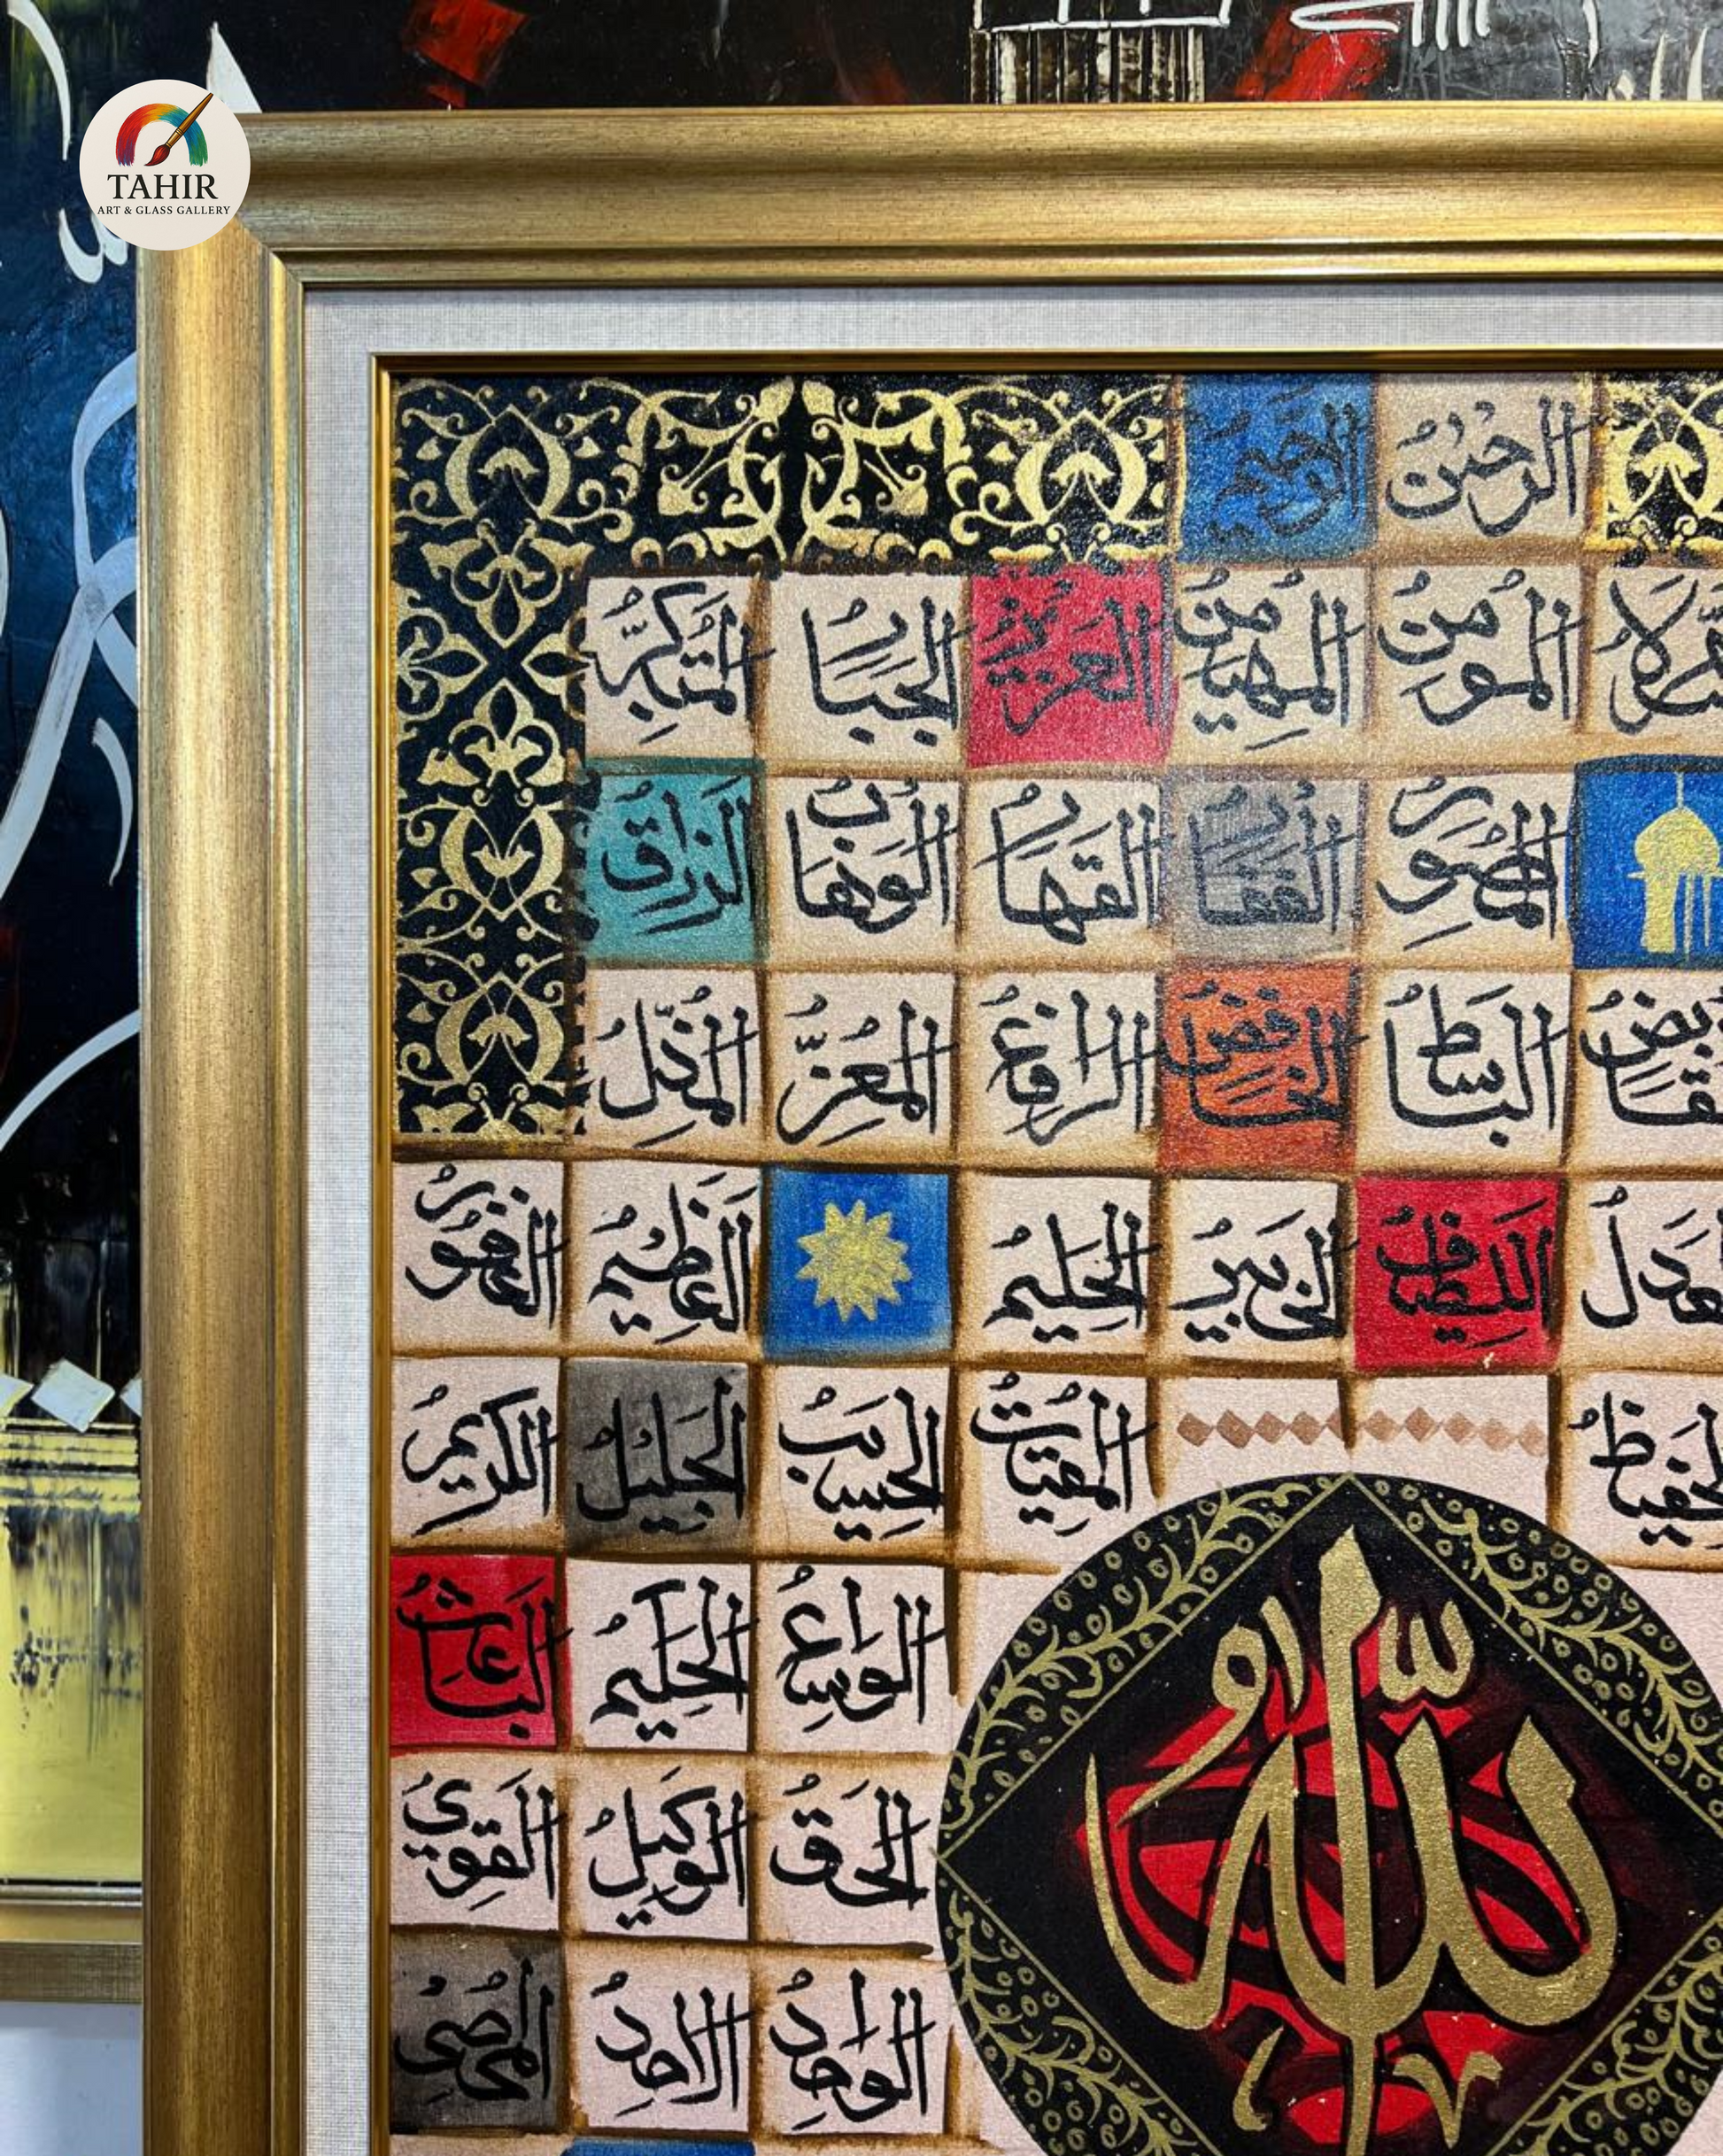 TAHIR
ART & GLASS GALLERY
الرحمن الرحيم
المؤمن المهيمن العزيز الجبار المتكبر
المصور الغفار القهار الوهاب الرزاق
الباسط الخافض الرافع المعز المذل
اللطيف الخبير الحليم العظيم الغفور
المقيت الحسيب الجليل الكريم
الواسع الحكيم الباعث
الحق الوكيل القوي
الواحد الاحد المحصي
الله